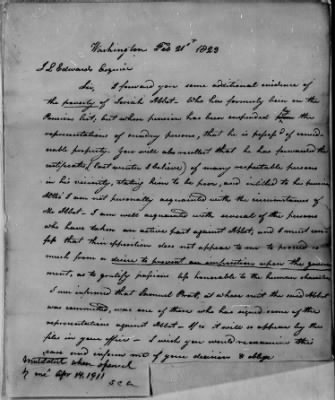 Washington Feb 21st 1823
J L Edwards Esquire
Sir, I forward you some additional evidence of
the poverty of Josiah Abbot. Who has formerly been on the
Pension list, but whose pension has been suspended from the
by
representations of evading persons, that he is possessed of consid
erable property. You will also recollect that he has forwarded the
certificate, (last winter I believe) of many respectable persons
in his vicinity, stating him to be poor, and intitled to his pension
Altho I am not personally acquainted with the circumstances of
Mr Abbot. I am well acquainted with several of the persons
who have taken an active part against Abbot, and I must con
fess that their opposition does not appear to me to proceed so
much from a desire to prevent an imposition upon this govern
ment, as to gratify passions less honorable to the human character
I am informed that Samuel Pratt, at whose suit the said Abbot
was committed, was one of those who has signed some of the
representations against Abbot - If so it will so appear by the
files in your office - I wish you would reexamine this
case and inform me of your decision & oblige
Mutilated when opened
by me Apr. 14, 1911
S.C.C.